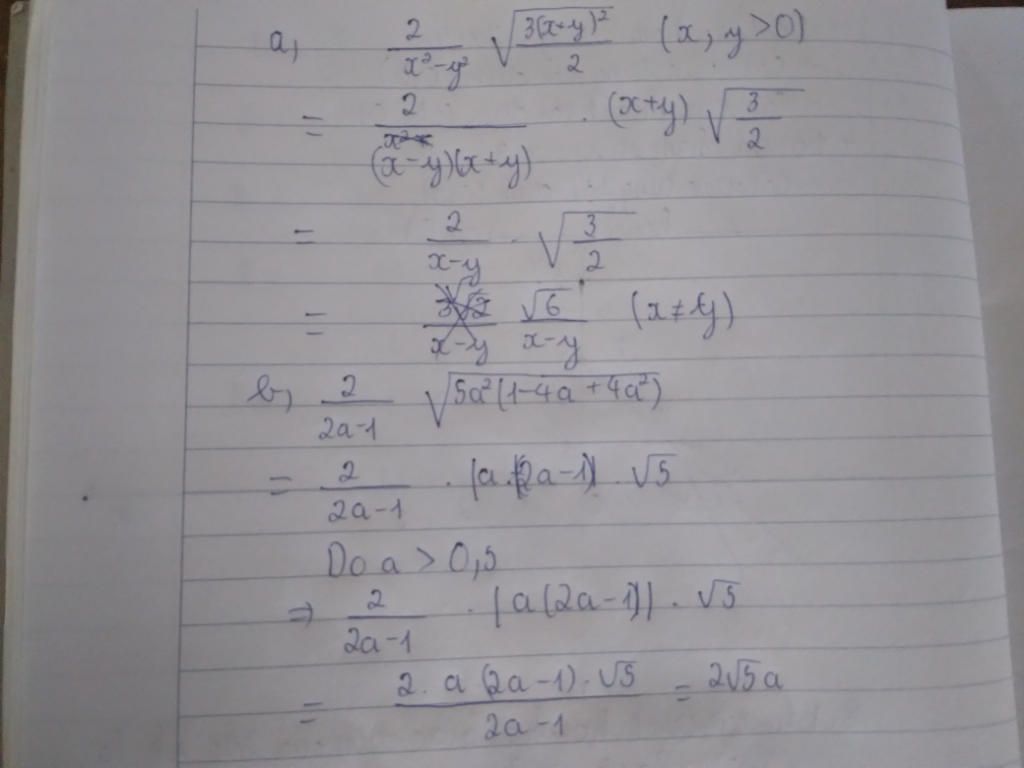 a, 2/(x²-y²) √(3(x+y)²/2) (x, y > 0)
= 2/((x-y)(x+y)) · (x+y) √(3/2)
= 2/(x-y) · √(3/2)
= √6/(x-y) (x ≠ y)
b, 2/(2a-1) √(5a²(1-4a+4a²))
= 2/(2a-1) · |a·(2a-1)| · √5
Do a > 0,5
⇒ 2/(2a-1) · |a(2a-1)| · √5
= (2·a(2a-1)·√5)/(2a-1) = 2√5a